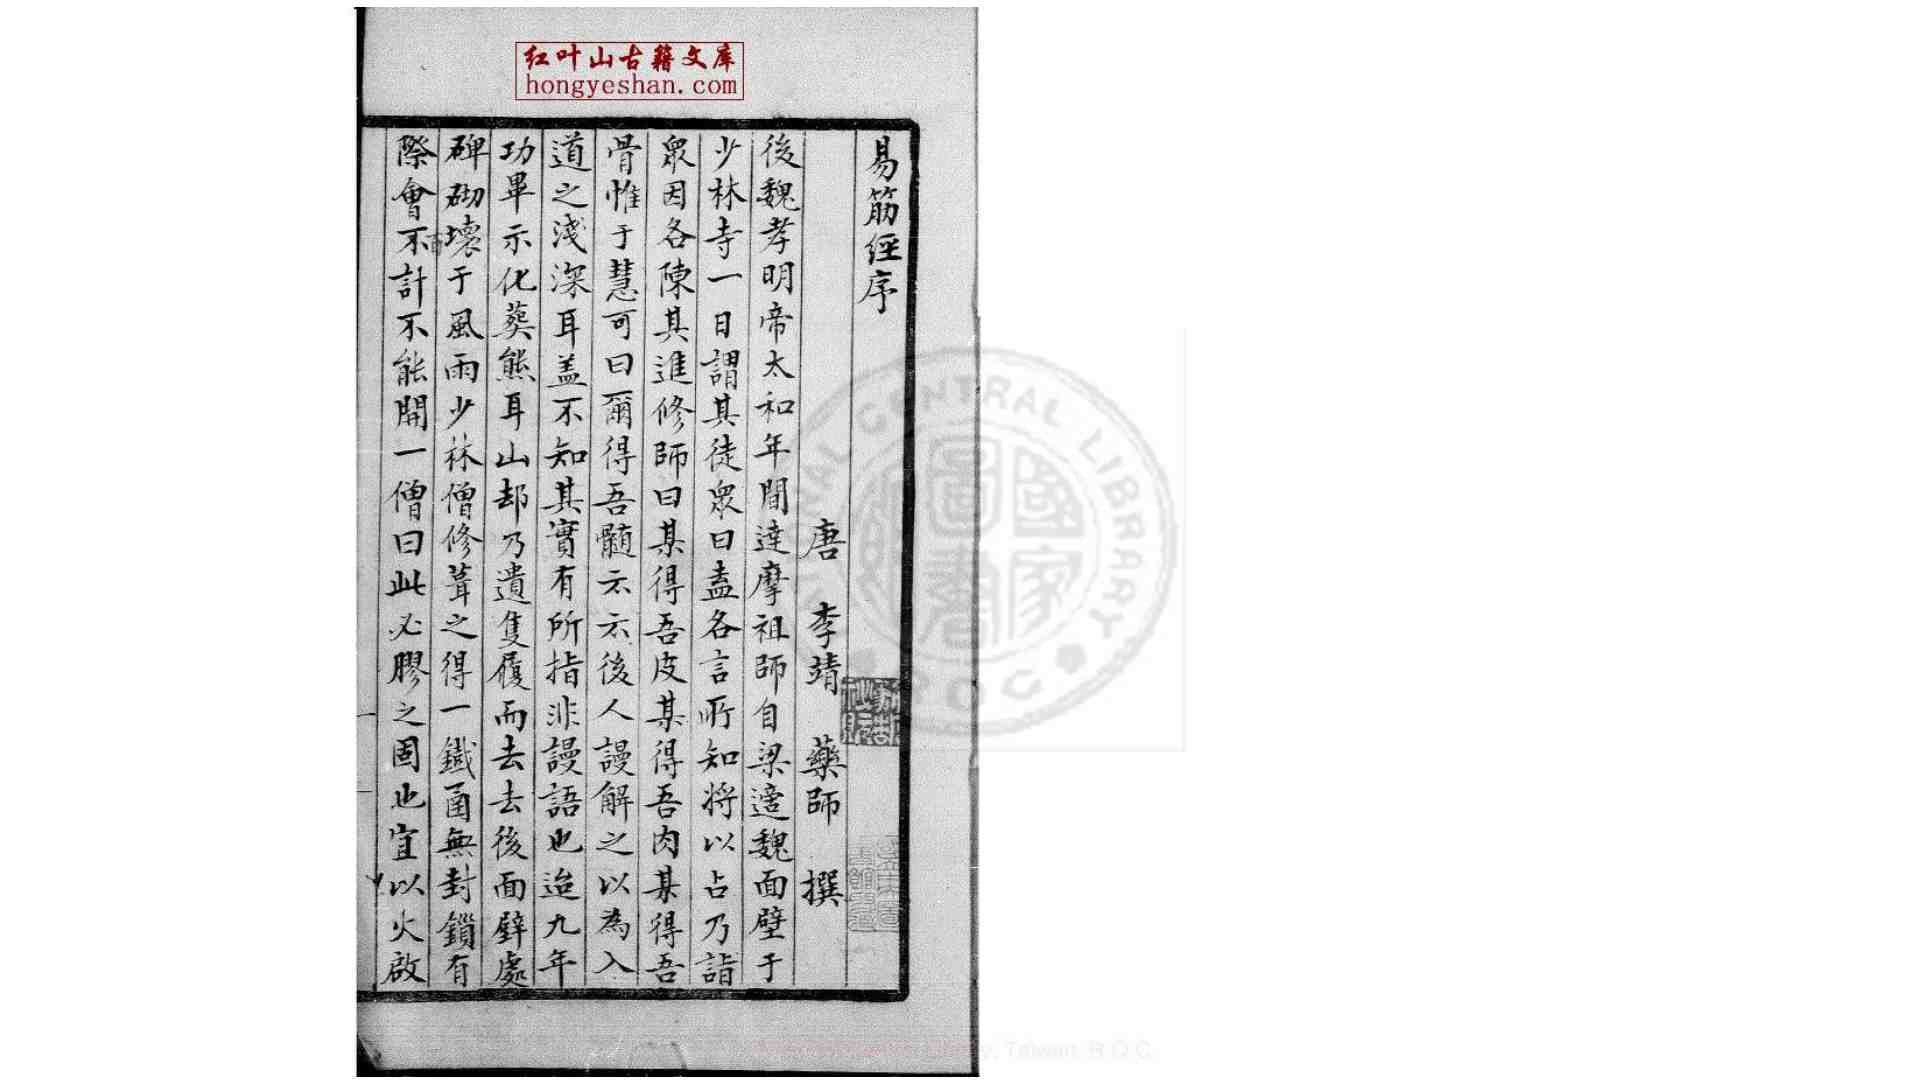 红叶山古籍文库
hongyeshan.com
易筋經序
唐 李靖 藥師 撰
後魏孝明帝太和年間達摩祖師自梁適魏面壁于
少林寺一日謂其徒衆曰盍各言所知將以占乃詣
衆因各陳其進修師曰某得吾皮某得吾肉某得吾
骨惟于慧可曰爾得吾髓云云後人謾解之以為入
道之淺深耳盖不知其實有所指非謾語也迨九年
功畢示化葬熊耳山却乃遺隻履而去去後面壁處
碑砌壞于風雨少林僧修葺之得一鐵函無封鎖有
際會不計不能開一僧曰此必膠之固也宜以火啟
NATIONAL CENTRAL LIBRARY
R O C
國家圖書館
Library, Taiwan, R.O.C